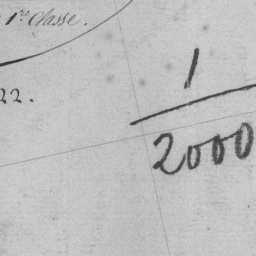 1re Classe.
22.
1
2000